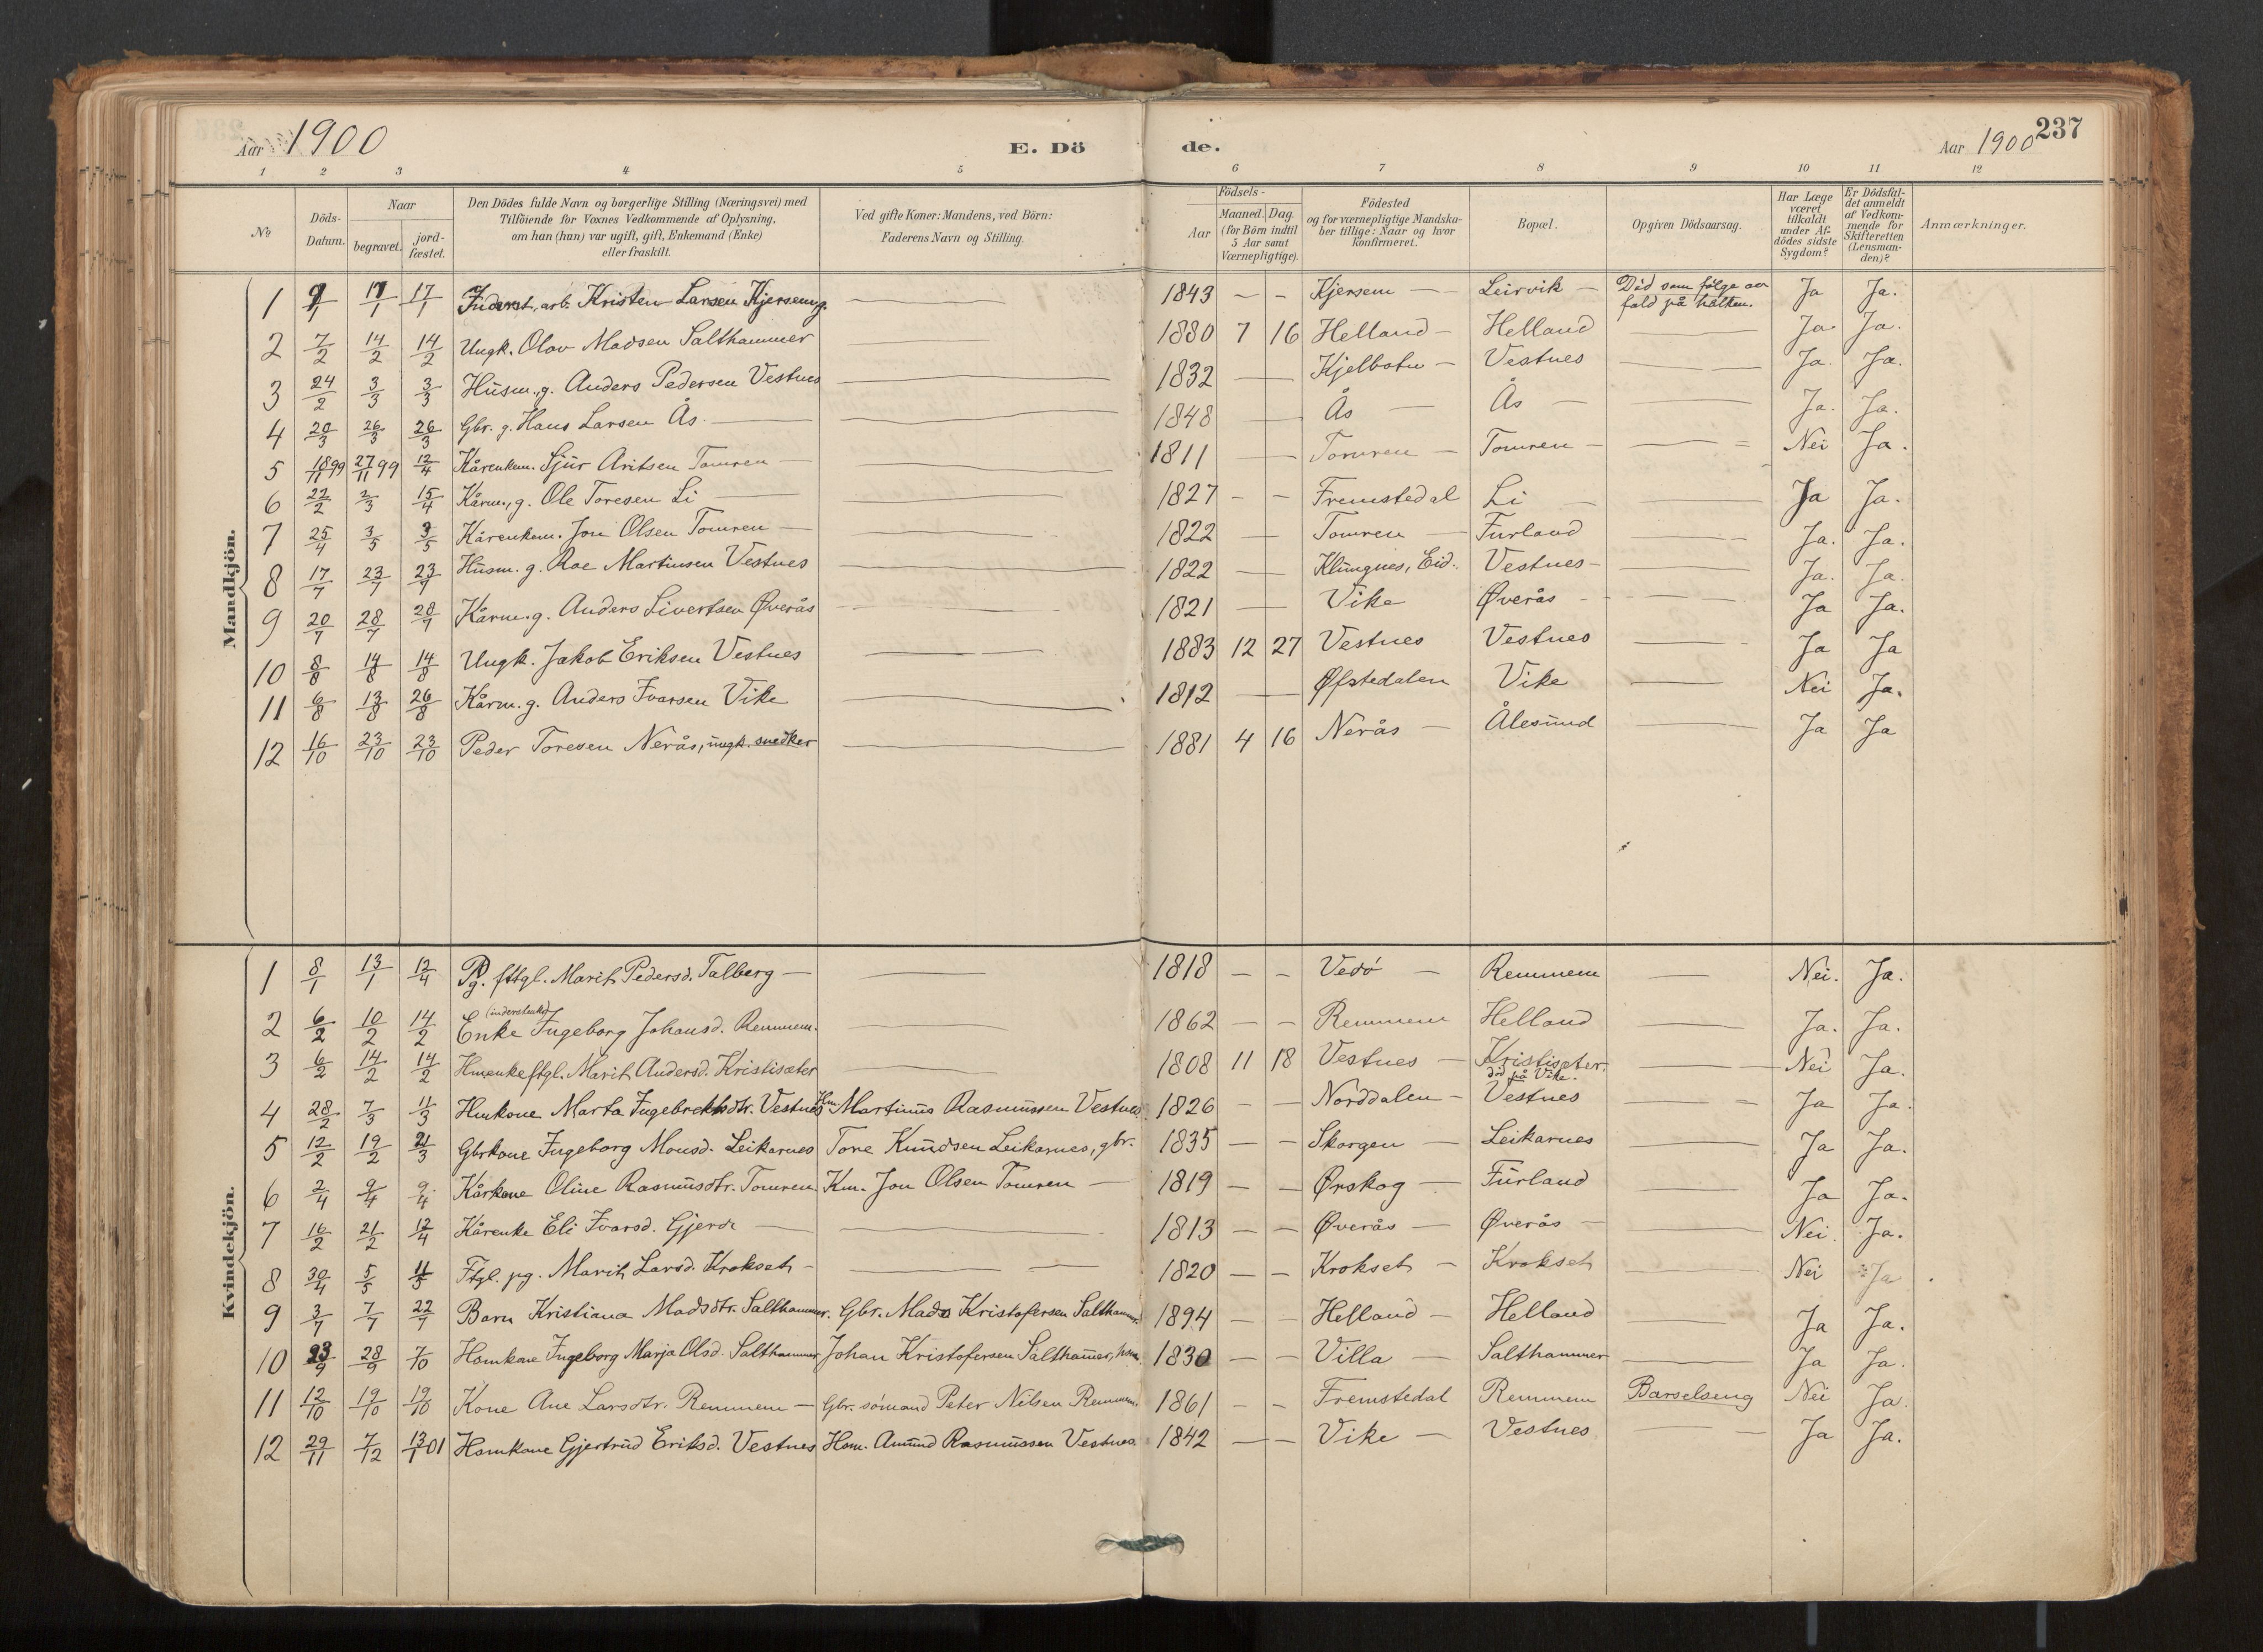 Aar 1900 E. Dö de. Aar 1900 237
1 2 3 4 5 6 7 8 9 10 11 12
No
Döds-Datum.
Naar
begravet.
jord-fæstet.
Den Dödes fulde Navn og borgerlige Stilling (Næringsvei) med
Tilföiende for Voxnes Vedkommende af Oplysning,
om han (hun) var ugift, gift, Enkemand (Enke)
eller fraskilt.
Ved gifte Koner: Mandens, ved Börn:
Faderens Navn og Stilling.
Födsels-
Aar
Maaned. Dag.
(for Börn indtil
5 Aar samt
Værnepligtige).
Födested
og for værnepligtige Mandska-
ber tillige: Naar og hvor
konfirmeret.
Bopæl.
Opgiven Dödsaarsag.
Har Læge
været
tilkaldt
under Af-
dödes sidste
Sygdom?
Er Dödsfal-
det anmeldt
af Vedkom-
mende for
Skifteretten
(Lensman-
den)?
Anmærkninger.
Mandkjön.
1 9/1 17/1 17/1 Inderst, arb. Kristen Larsen Kjersem, g. — 1843 — — Kjersem — Leirvik — Död som følge av fald på hålken. Ja Ja.
2 7/2 14/2 14/2 Ungk. Olav Madsen Salthammer — 1880 7 16 Helland — Helland — Ja. Ja.
3 24/2 3/3 3/3 Husm., g. Anders Pedersen Vestnes — 1832 — Kjelbotn — Vestnes — Ja. Ja.
4 20/3 26/3 26/3 Gbr. g. Hans Larsen Ås. — 1848 — Ås — Ås — Ja. Ja.
5 18/11 99 27/11 99 12/4 Kårenkem. Sjur Aritsen Tomren — 1811 — Tomren — Tomren — Nei Ja.
6 22/2 2/3 15/4 Kårm., g. Ole Toresen Li — 1827 — — Fremstedal Li — Ja Ja.
7 25/4 3/5 3/5 Kårenkem. Jon Olsen Tomren — 1822 — Tomren — Furland — Ja. Ja.
8 17/7 23/7 23/7 Husm. g. Roe Martinsen Vestnes — 1822 — Klungnes, Eid. Vestnes — Ja. Ja.
9 20/7 28/7 28/7 Kårm. g. Anders Sivertsen Øverås — 1821 — Vike Øverås — Ja Ja.
10 8/8 14/8 14/8 Ungk. Jakob Eriksen Vestnes — 1883 12 27 Vestnes Vestnes — Ja Ja
11 6/8 13/8 26/8 Kårm. g. Anders Ivarsen Vike — 1812 — Øfstedalen Vike — Nei Ja.
12 16/10 23/10 23/10 Peder Toresen Nerås, ungk. snedker — 1881 4 16 Nerås — Ålesund — Ja Ja
Kvindekjön.
1 8/1 13/1 12/4 Pg. fttgl. Marit Pedersd. Talberg — 1818 — — Vedö — Remmem — Nei. Ja.
2 6/2 10/2 14/2 (inderstenke) Enke Ingeborg Johansd. Remmem. 1862 — — Remmem Helland — Ja. Ja.
3 6/2 14/2 14/2 Hmenke ftgl. Marit Andersd. Kristisæter — 1808 11 18 Vestnes — Kristisæter. död på Vike. — Nei Ja.
4 28/2 7/3 11/3 Hmkone Marta Ingebrektsdtr. Vestnes Hm. Martinus Rasmussen Vestnes. 1826 — — Norddalen — Vestnes — Ja Ja.
5 12/2 19/2 21/3 Gbrkone Ingeborg Monsd. Leikarnes Tore Knudsen Leikarnes, gbr. 1835 — — Skorgen — Leikarnes — Ja Ja.
6 2/4 9/4 9/4 Kårkone Oline Rasmusdtr. Tomren Km. Jon Olsen Tomren — 1819 — — Ørskog — Furland — Ja Ja.
7 16/2 21/2 12/4 Kårenke Eli Ivarsd. Gjerde — 1813 — — Øverås — Øverås — Nei. Ja.
8 30/4 5/5 11/5 Ftgl. pg. Marit Larsd. Krokset — 1820 — — Krokset — Krokset — Nei Ja
9 3/7 7/7 22/7 Barn Kristiana Madsdtr. Salthammer. Gbr. Mads Kristofersen Salthammer. 1894 — — Helland — Helland — Ja Ja.
10 23/9 28/9 7/10 Hsmkone Ingeborg Marja Olsd. Salthammer Johan Kristofersen Salthamer, hsm. 1830 — — Villa — Salthammer — Ja Ja.
11 12/10 19/10 19/10 Kone Ane Larsdtr. Remmem — Gbr. sömand Peter Nilsen Remmem. 1861 — — Fremstedal Remmem Barselseng Nei Ja.
12 29/11 7/12 13/1 01 Hsmkone Gjertrud Eriksd. Vestnes Hsm. Amund Rasmussen Vestnes. 1842 — — Vike — Vestnes — Ja Ja.